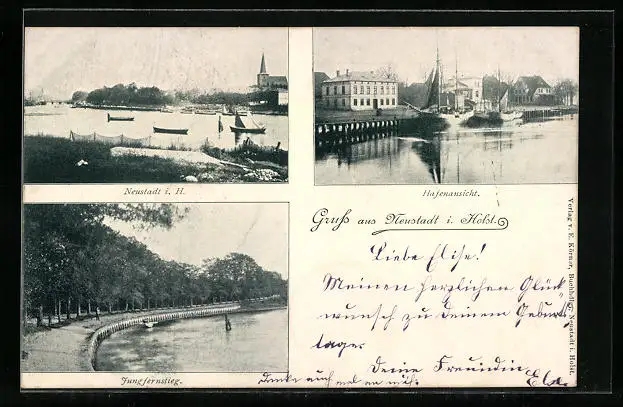 Neustadt i. H.
Hafenansicht.
Gruß aus Neustadt i. Holst.
Liebe Elise!
Meinen herzlichen Glück
wunsch zu deinem Geburts
tage.
Deine Freundin
Jungfernstieg.
Denke auch mal an mich
Verlag v. E. Körner, Buchhdlg. Neustadt i. Holst.